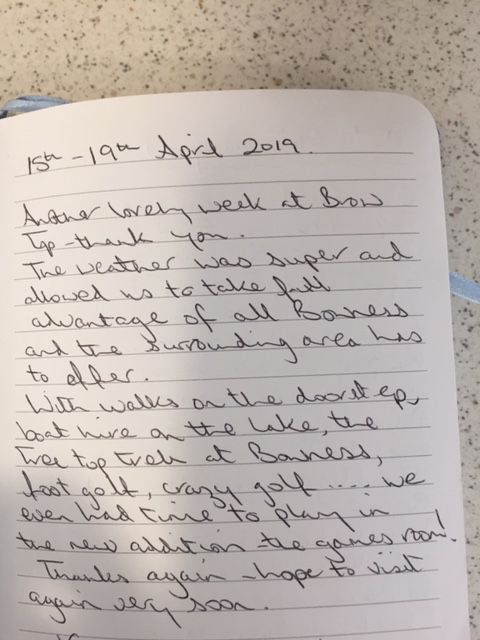 15th - 19th April 2019.
Another lovely week at Brow
Top - thank you.
The weather was super and
allowed us to take full
advantage of all Bowness
and the surrounding area has
to offer.
With walks on the doorstep,
boat hire on the lake, the
tree top trek at Bowness,
foot golf, crazy golf ..... we
even had time to play in
the new addition - the games room!
Thanks again - hope to visit
again very soon.